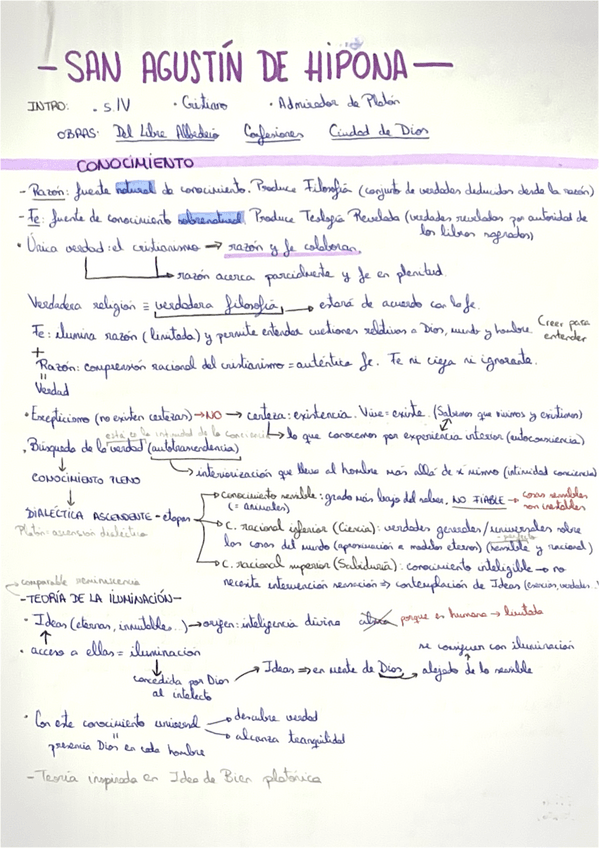 - SAN AGUSTÍN DE HIPONA -
INTRO: · s. IV · Cristiano · Admirador de Platón
OBRAS: Del Libre Albedrío Confesiones Ciudad de Dios
CONOCIMIENTO
- Razón: fuente natural de conocimiento. Produce Filosofía (conjunto de verdades deducidas desde la razón)
- Fe: fuente de conocimiento sobrenatural. Produce Teología Revelada (verdades reveladas por autoridad de los libros sagrados)
· Única verdad: el cristianismo → razón y fe colaboran.
→ razón acerca parcialmente y fe en plenitud.
Verdadera religión ≡ verdadera filosofía → estará de acuerdo con la fe.
Fe: ilumina razón (limitada) y permite entender cuestiones relativas a Dios, mundo y hombre. Creer para entender
+
Razón: comprensión racional del cristianismo = auténtica fe. Fe ni ciega ni ignorante.
=
Verdad
· Excepticismo (no existen certezas) → NO → certeza: existencia. Vive = existe. (Sabemos que vivimos y existimos)
esta es la intimidad de la conciencia → lo que conocemos por experiencia interior (autoconsciencia)
· Búsqueda de la verdad (autotrascendencia)
→ interiorización que lleva al hombre más allá de sí mismo (intimidad conciencia)
CONOCIMIENTO PLENO
→ conocimiento sensible: grado más bajo del saber, NO FIABLE → cosas sensibles son inestables
(= animales)
DIALÉCTICA ASCENDENTE - etapas
Platón: ascensión dialéctica
→ C. racional inferior (Ciencia): verdades generales/universales sobre
las cosas del mundo (aproximación a modelos eternos) (sensible y racional)
→ C. racional superior (Sabiduría): conocimiento inteligible → no
necesita intervención sensación ⇒ contemplación de Ideas (esencias, verdades..)
→ comparable reminiscencia
- TEORÍA DE LA ILUMINACIÓN -
· Ideas (eternas, inmutables...) → origen: inteligencia divina porque es humana → limitada
· acceso a ellas = iluminación
se consiguen con iluminación
concedida por Dios al intelecto
→ Ideas ⇒ en mente de Dios → alejado de lo sensible
· Con este conocimiento universal → descubre verdad
→ alcanza tranquilidad
=
presencia Dios en cada hombre
- Teoría inspirada en Idea de Bien platónica